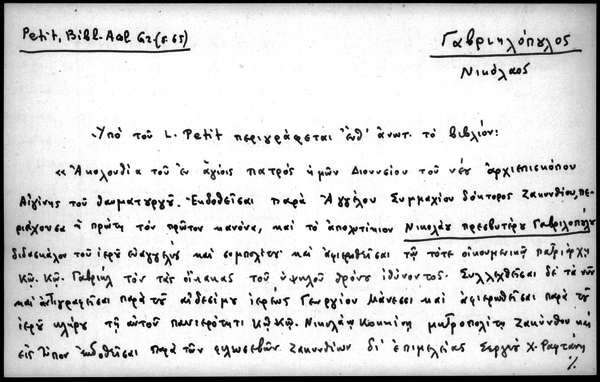 Petit, Bibl. Acol 62 (σ. 65)
Γαβριηλόπουλος
Νικόλαος
Ὑπὸ τοῦ L. Petit περιγράφεται ἔνθ' ἀνωτ. τὸ βιβλίον:
« Ἀκολουθία τοῦ ἐν ἁγίοις πατρὸς ἡμῶν Διονυσίου τοῦ νέου ἀρχιεπισκόπου
Αἰγίνης τοῦ θαυματουργοῦ. Ἐκδοθεῖσαι παρὰ Ἀγγέλου Συμμαχίου δόκτορος Ζακυνθίου, πε-
ριάχουσα ἡ πρώτη τὸν πρῶτον κανόνα, καὶ τὸ ἀπολυτίκιον Νικολάου πρεσβυτέρου Γαβριλοπούλου
διδασκάλου τοῦ ἱεροῦ εὐαγγελίου καὶ συμπολίτου καὶ ἀφιερωθεῖσαι τῷ τότε οἰκουμενικῷ πατριάρχῃ
Κῳ. Κῳ. Γαβριὴλ τὸν τὰς οἴακας τοῦ ὑψηλοῦ θρόνου ἰθύνοντος. Συλλεχθεῖσαι δὲ τὰ νῦν
καὶ ἀντιγραφεῖσαι παρὰ τοῦ αἰδεσίμου ἱερέως Γεωργίου Μάνεσι καὶ ἀφιερωθεῖσαι παρὰ τοῦ
ἱεροῦ κλήρου τῇ αὐτοῦ πανιερότητι Κῳ Κῳ. Νικολάῳ Κοκκίνῃ μητροπολίτῃ Ζακύνθου καὶ
εἰς τύπον ἐκδοθεῖσαι παρὰ τῶν φιλοσεβῶν Ζακυνθίων δι' ἐπιμελείας Σεργίου Χ. Ραφτάνη
%